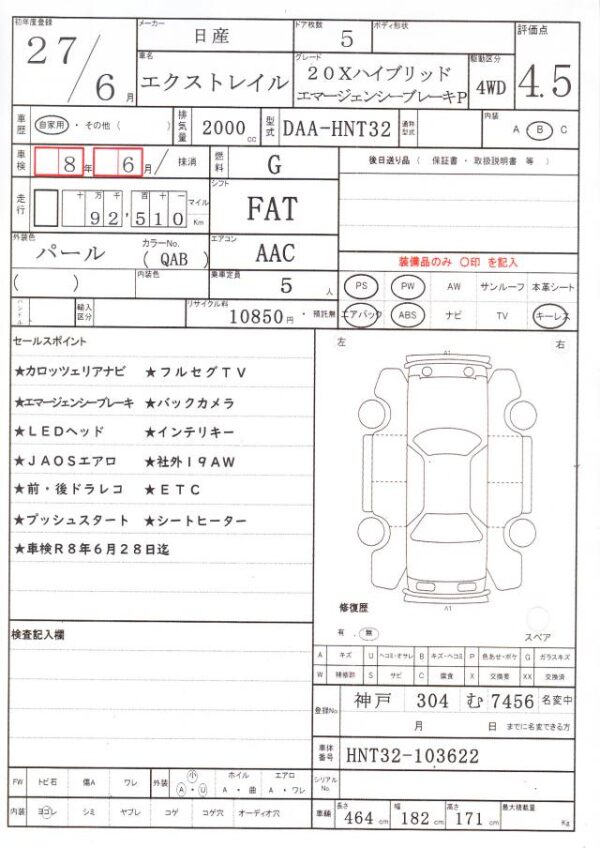 初年度登録 27/6月
メーカー 日産
ドア枚数 5
ボディ形状
評価点 4.5
車名 エクストレイル
グレード 20Xハイブリッド
エマージェンシーブレーキP
駆動区分 4WD
車歴 自家用・その他( )
排気量 2000cc
型式 DAA-HNT32
通称型式
内装 A B C
車検 8年 6月/ 抹消
燃料 G
後日送り品( 保証書・取扱説明書 等 )
走行 十万千百十 92,510 マイル Km
シフト FAT
外装色 パール
カラーNo. (QAB)
エアコン AAC
装備品のみ 〇印 を記入
( ) 内装色
乗車定員 5人
PS PW AW サンルーフ 本革シート
エアバック ABS ナビ TV キーレス
ハンドル
輸入区分
リサイクル料 10850円・預託無
セールスポイント
★カロッツェリアナビ ★フルセグTV
★エマージェンシーブレーキ ★バックカメラ
★LEDヘッド ★インテリキー
★JAOSエアロ ★社外19AW
★前・後ドラレコ ★ETC
★プッシュスタート ★シートヒーター
★車検R8年6月28日迄
左 右
A1
A1
修復歴
有 . 無
スペア
検査記入欄
A キズ U ヘコミ・オサレ B キズ・ヘコミ P 色あせ・ボケ G ガラスキズ
W 補修跡 S サビ C 腐食 X 交換要 XX 交換済
登録No 神戸 304 む 7456 名変中
月 日 までに名変できる方
車体番号 HNT32-103622
FW トビ石 傷A ワレ
外装 小 A・U ホイル A・曲 エアロ A・ワレ
シリアルNo.
内装 ヨゴレ シミ ヤブレ コゲ コゲ穴 オーディオ穴
車輛 長さ 464cm 幅 182cm 高さ 171cm 最大積載量 Kg